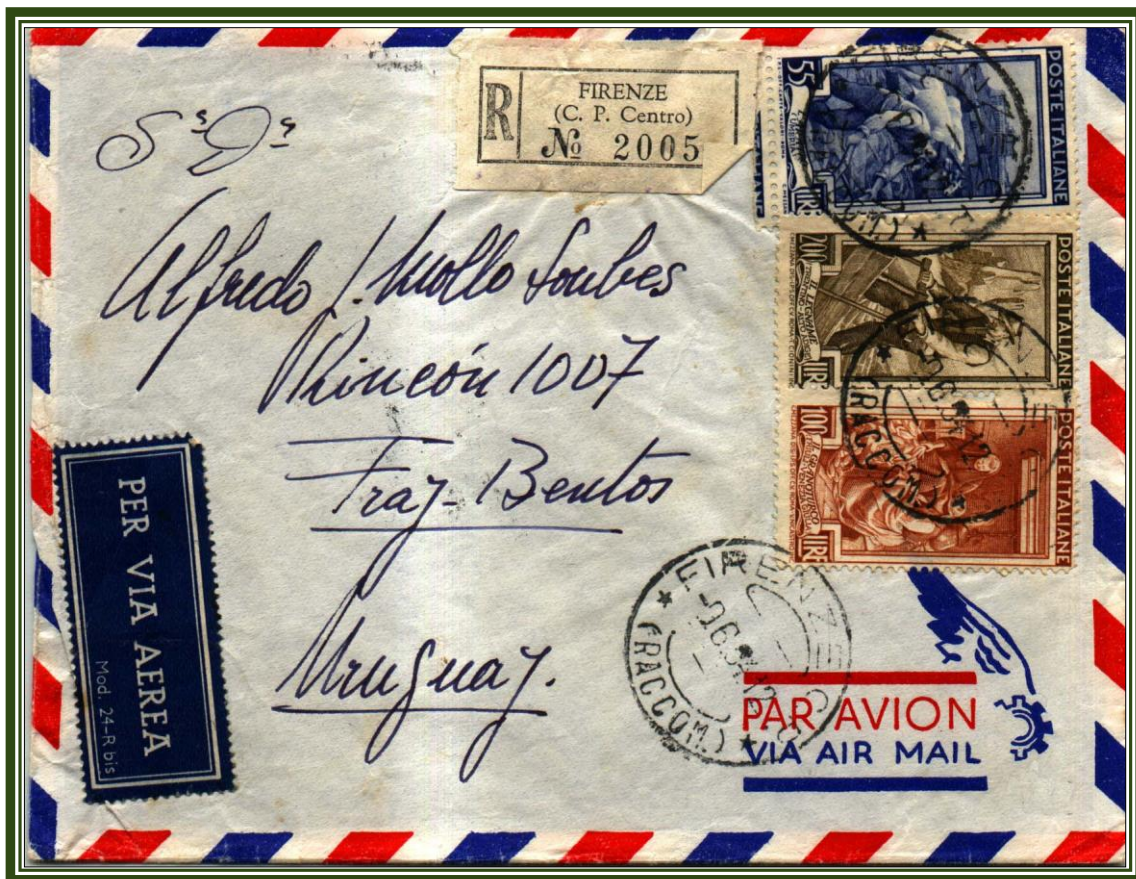 R
FIRENZE
(C. P. Centro)
№ 2005
POSTE ITALIANE
55 LIRE
POSTE ITALIANE
200 LIRE
POSTE ITALIANE
100 LIRE
Alfredo J. Mollo Soubes
Rincón 1007
Fray-Bentos
Uruguay.
PER VIA AEREA
Mod. 24-R bis
FIRENZE
(RACCOM.)
(RACCOM.)
PAR AVION
VIA AIR MAIL